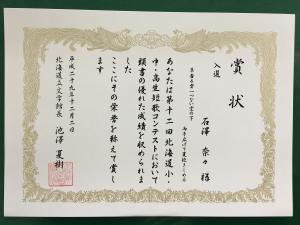 賞状
入選
石澤 奈々 様
あなたは第十二回北海道小・
中・高生短歌コンテストにおいて
頭書の優れた成績を収められま
した
ここにその栄誉を称えて賞し
ます
平成二十九年十二月二日
北海道立文学館長 池澤夏樹